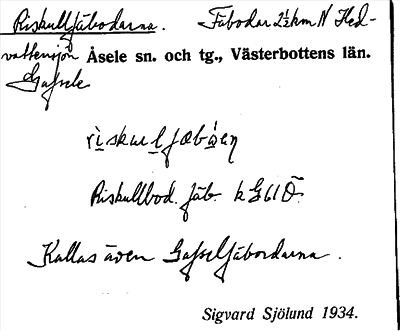 Riskullfäbodarna. Fäbodar 2½ km N Hed-
vattensjön Åsele sn. och tg., Västerbottens län.
Gafsele
riskul fæbóen
Riskullbod. fäb. k G 61 Ö
Kallas även Gafselfäbodarna.
Sigvard Sjölund 1934.